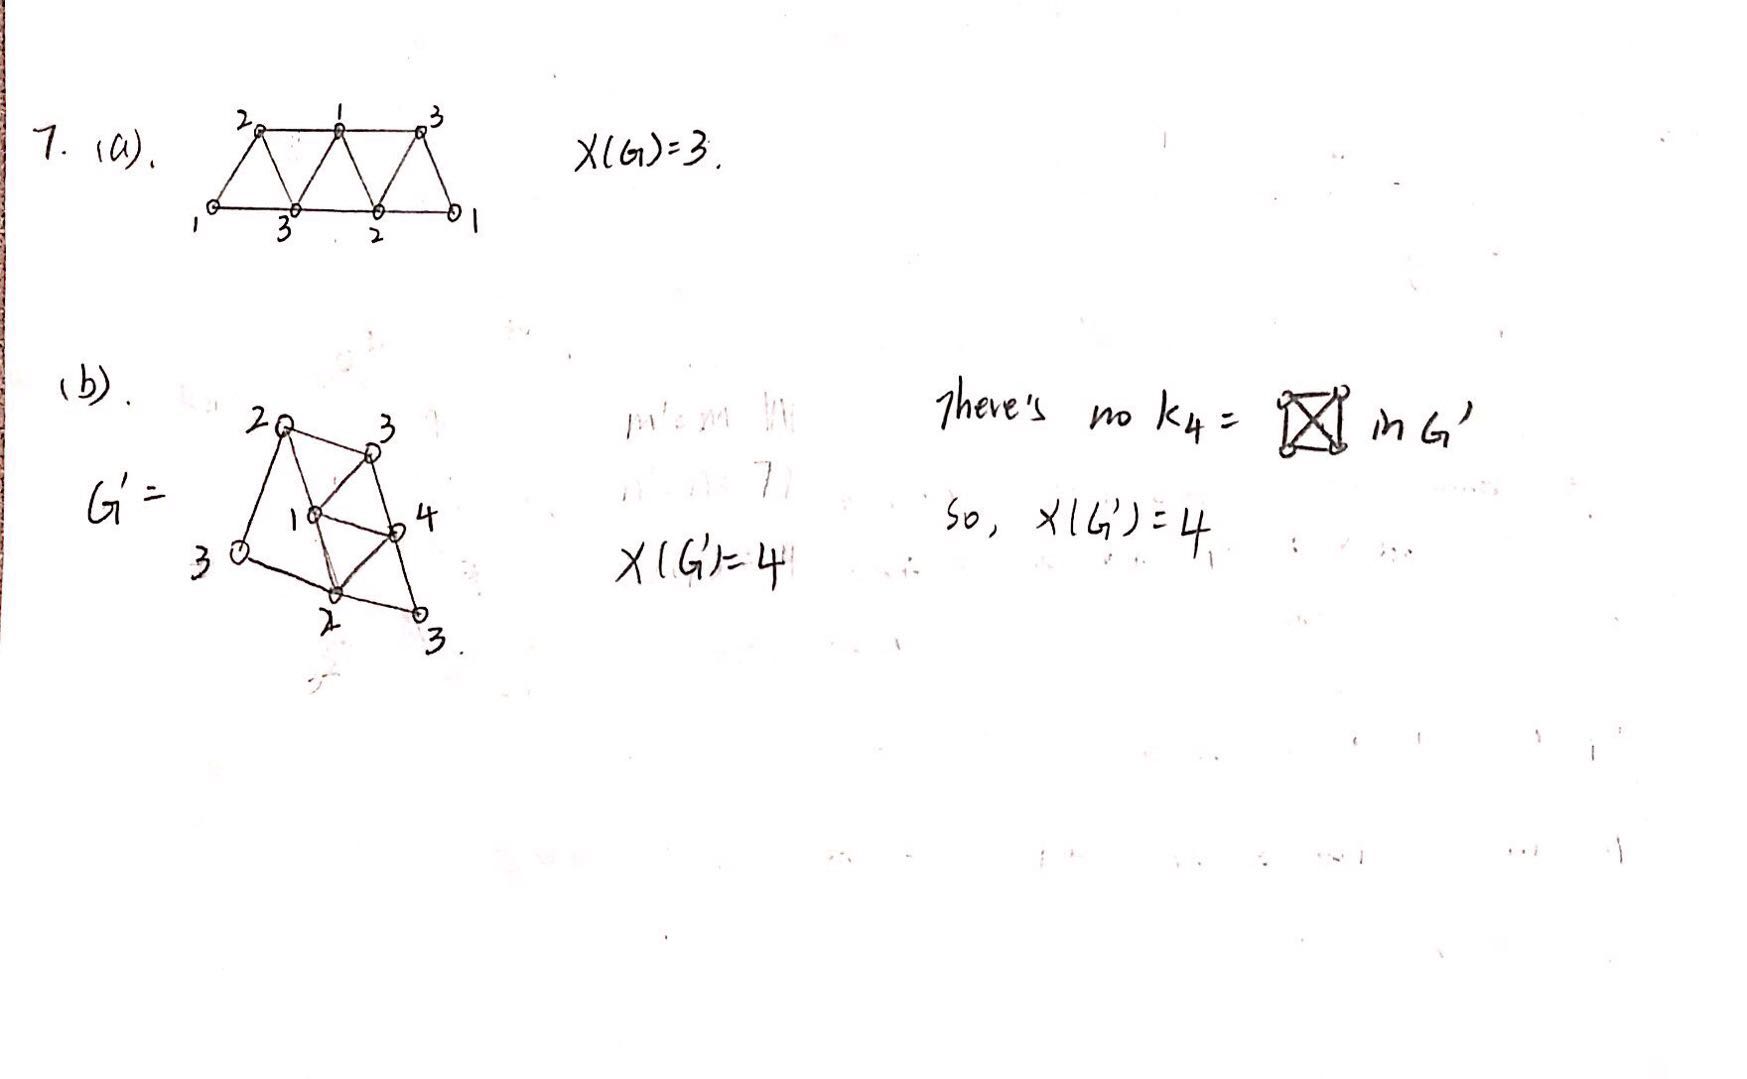 7. (a).
2 1 3
1 3 2 1
X(G)=3.
(b).
G' =
2 3
1 4
3
2
3.
X(G')=4
There's no K4 = in G'
So, X(G')=4